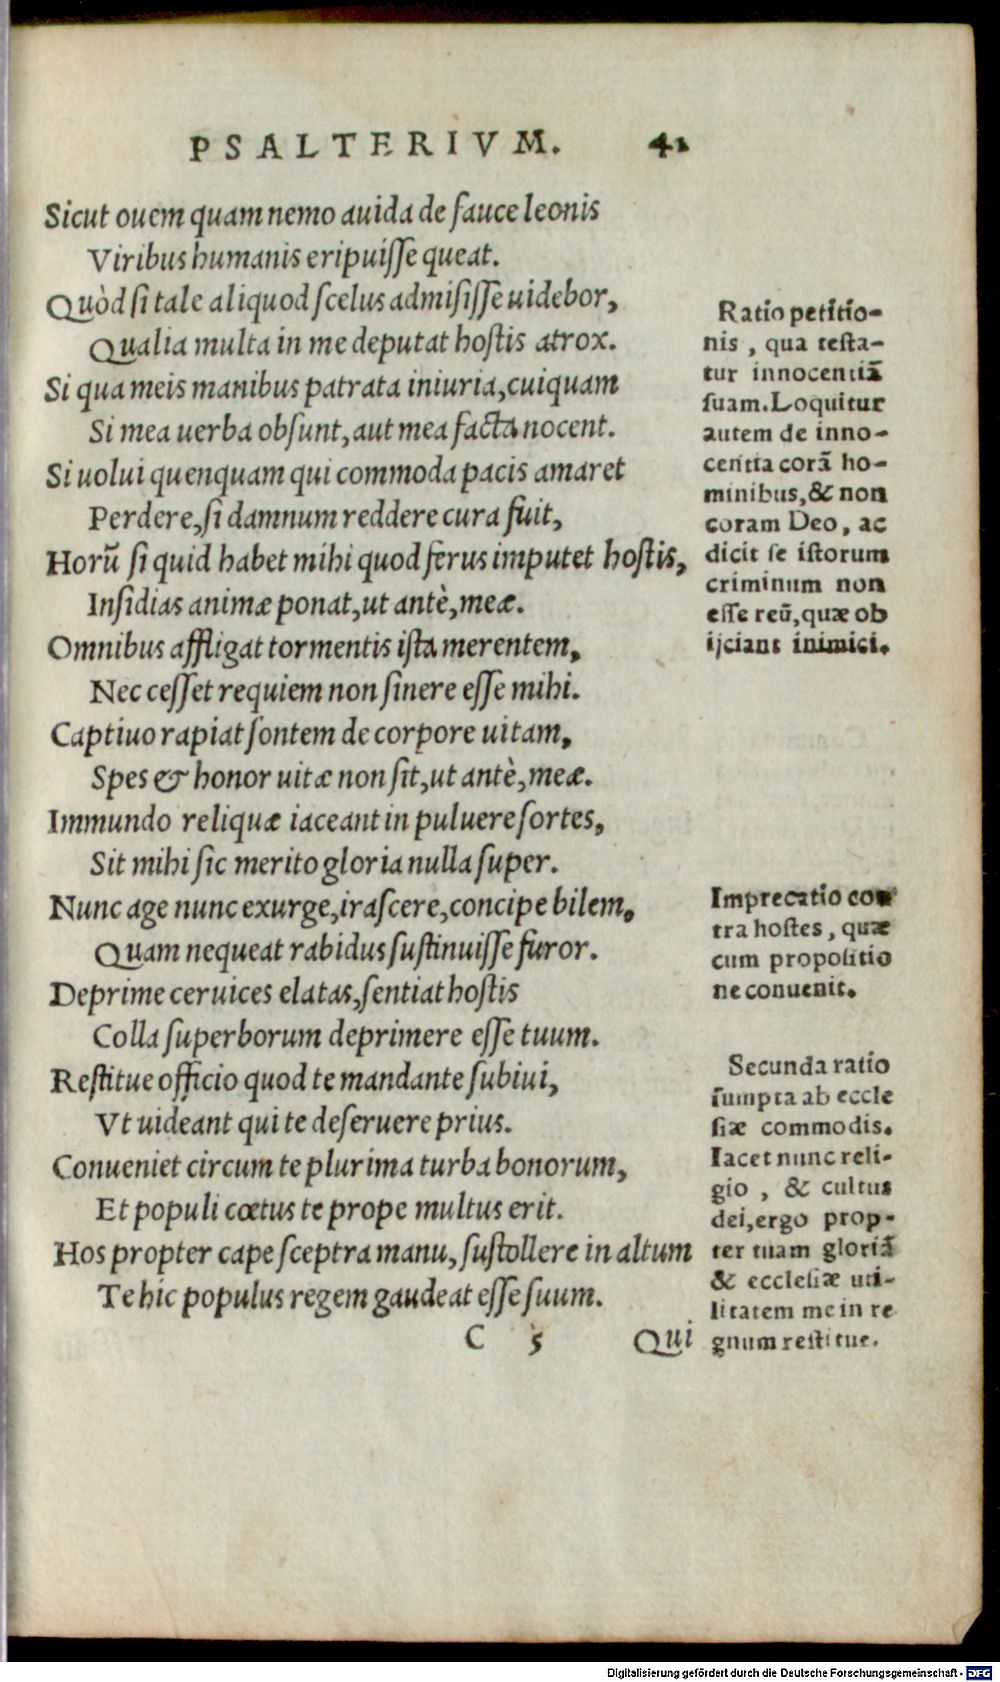 PSALTERIVM. 41
Sicut ouem quam nemo auida de fauce leonis
Viribus humanis eripuisse queat.
Quòd si tale aliquod scelus admisisse uidebor,
Qualia multa in me deputat hostis atrox.
Si qua meis manibus patrata iniuria, cuiquam
Si mea uerba obsunt, aut mea facta nocent.
Si uolui quenquam qui commoda pacis amaret
Perdere, si damnum reddere cura fuit,
Horū si quid habet mihi quod ferus imputet hostis,
Insidias animæ ponat, ut antè, meæ.
Omnibus affligat tormentis ista merentem,
Nec cesset requiem non sinere esse mihi.
Captiuo rapiat sontem de corpore uitam,
Spes & honor uitæ non sit, ut antè, meæ.
Immundo reliquæ iaceant in puluere sortes,
Sit mihi sic merito gloria nulla super.
Nunc age nunc exurge, irascere, concipe bilem,
Quam nequeat rabidus sustinuisse furor.
Deprime ceruices elatas, sentiat hostis
Colla superborum deprimere esse tuum.
Restitue officio quod te mandante subiui,
Vt uideant qui te deseruere prius.
Conueniet circum te plurima turba bonorum,
Et populi cœtus te prope multus erit.
Hos propter cape sceptra manu, sustollere in altum
Te hic populus regem gaudeat esse suum.
C 5 Qui
Ratio petitio-
nis, qua testa-
tur innocentiā
suam. Loquitur
autem de inno-
centia corā ho-
minibus, & non
coram Deo, ac
dicit se istorum
criminum non
esse reū, quæ ob
ijciant inimici.
Imprecatio con
tra hostes, quæ
cum propositio
ne conuenit.
Secunda ratio
sumpta ab eccle
siæ commodis.
Iacet nunc reli-
gio, & cultus
dei, ergo prop-
ter tuam gloriā
& ecclesiæ uti-
litatem me in re
gnum restitue.
Digitalisierung gefördert durch die Deutsche Forschungsgemeinschaft - DFG